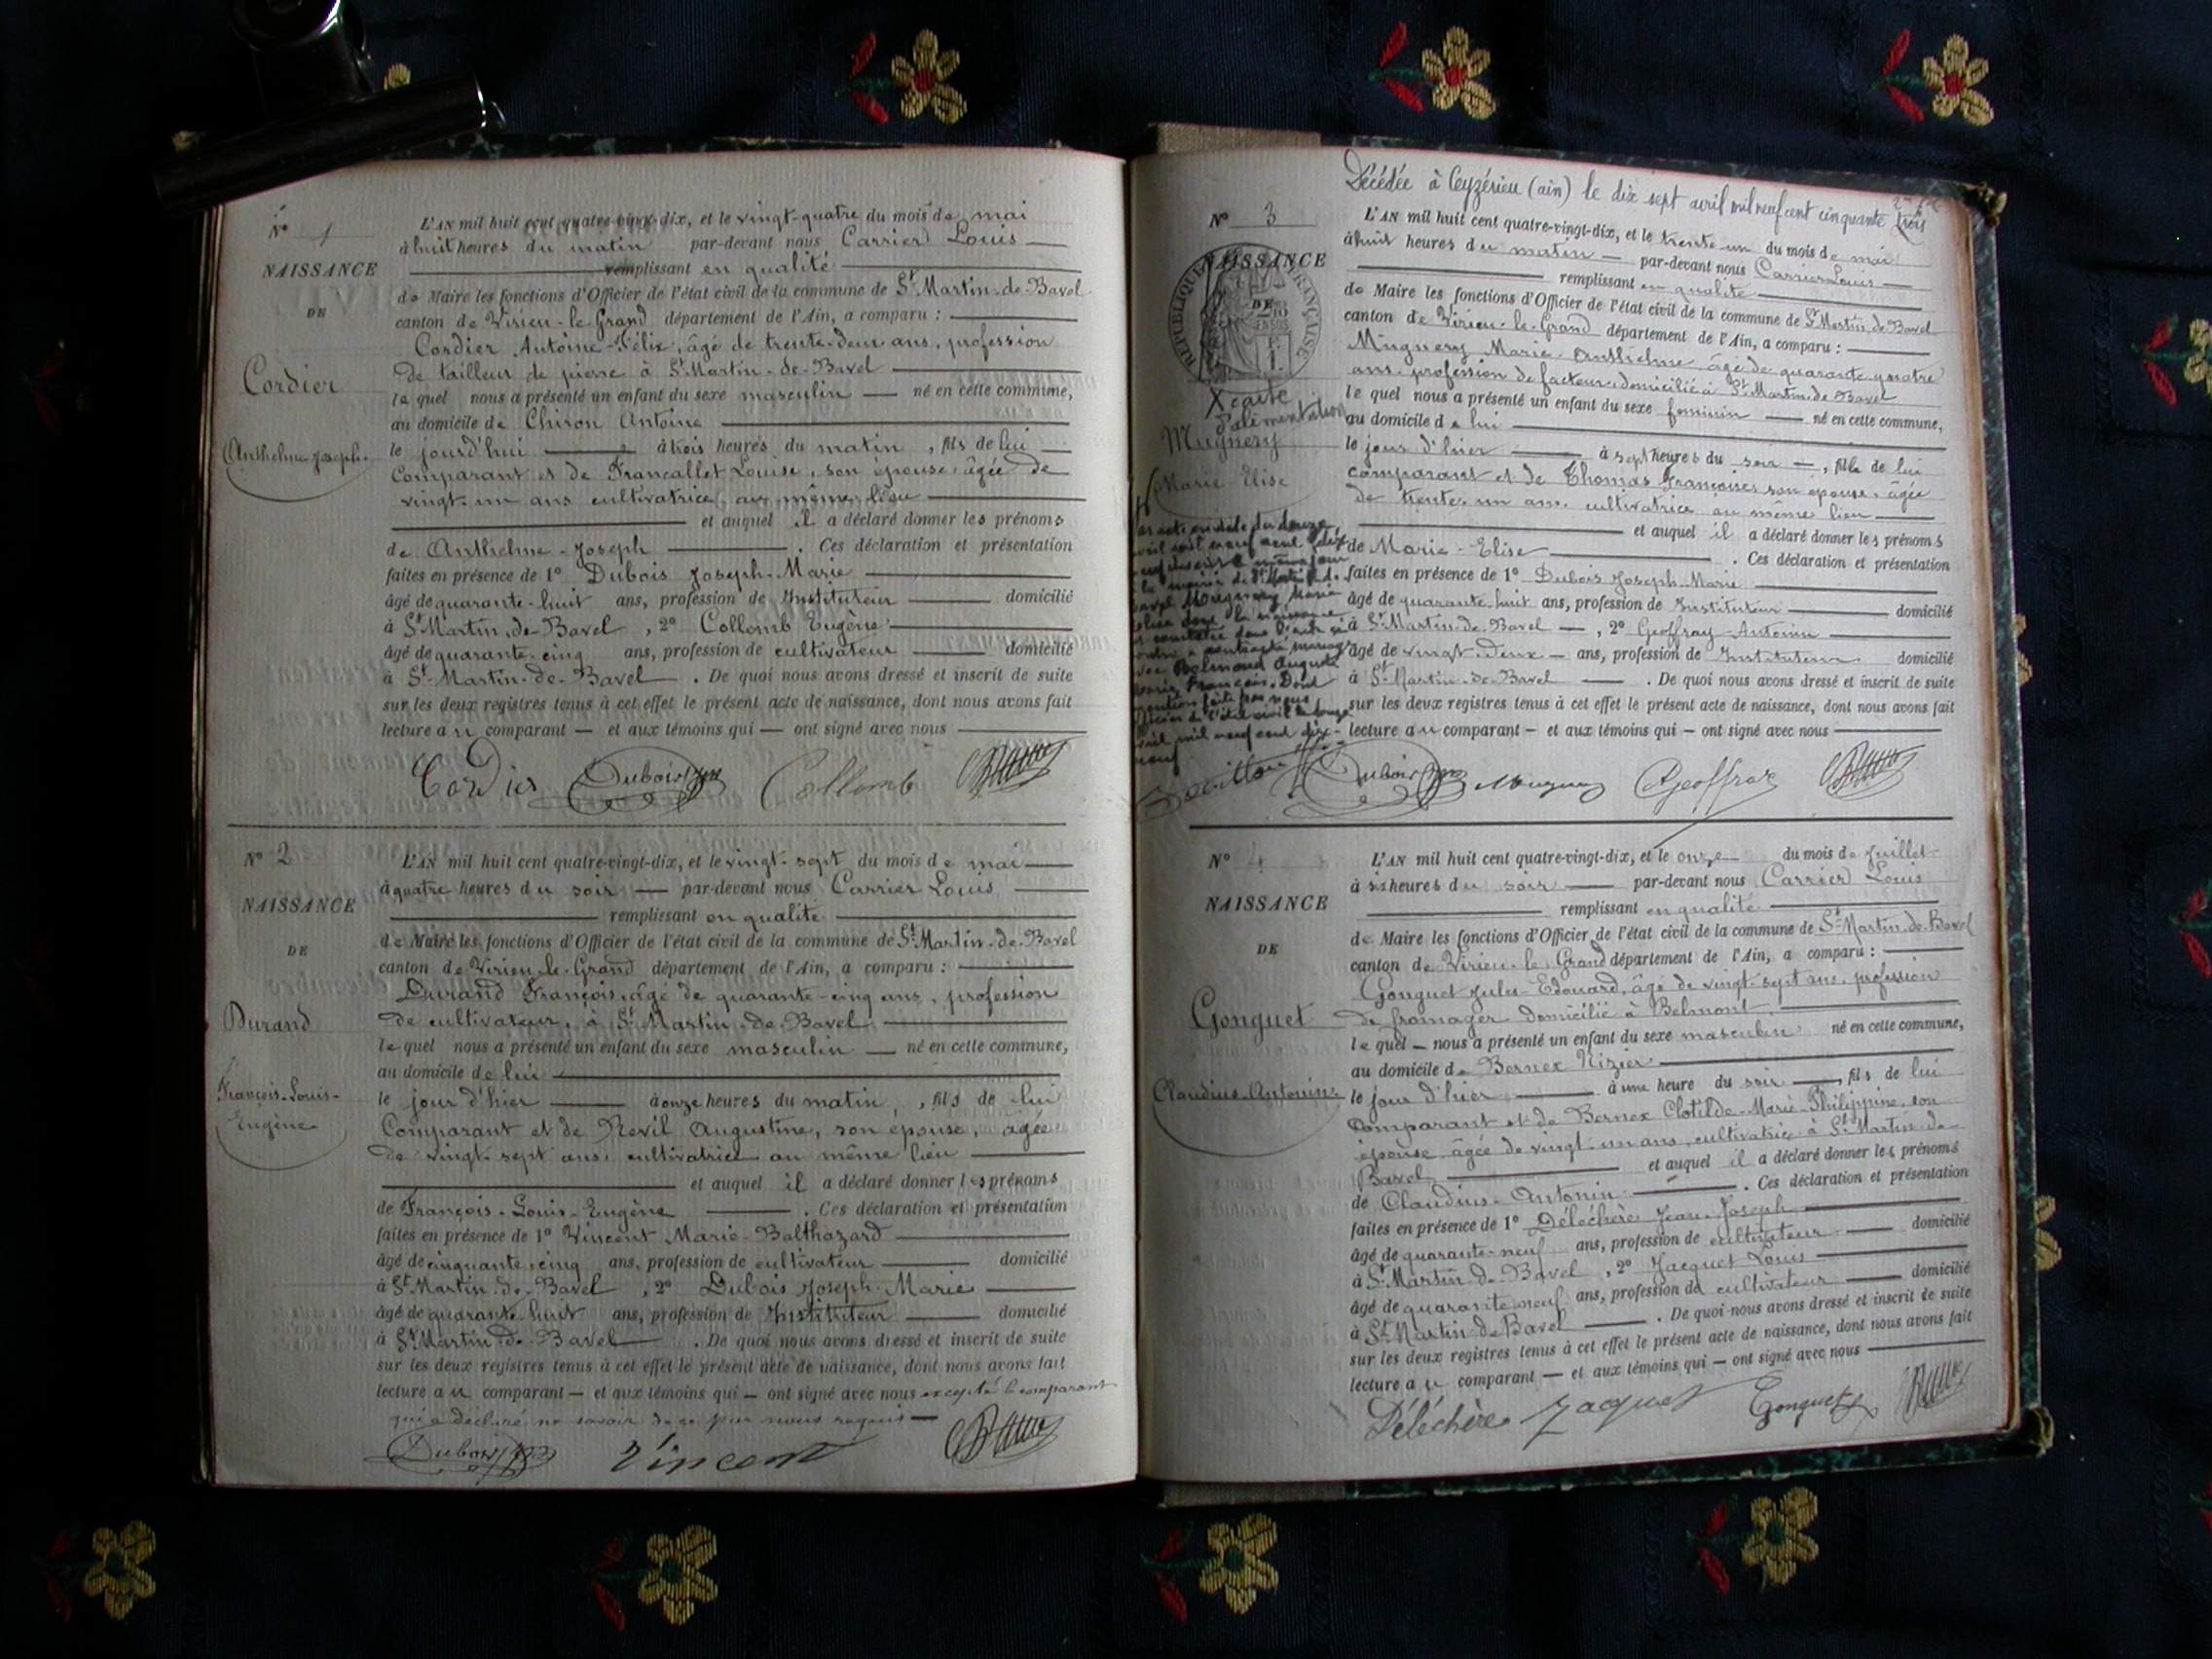 N° 1
NAISSANCE
DE
Cordier
Anthelme Joseph
L'AN mil huit cent quatre-vingt-dix, et le vingt-quatre du mois de mai
à huit heures du matin par-devant nous Carrier Louis
remplissant en qualité
de Maire les fonctions d'Officier de l'état civil de la commune de St Martin-de-Bavel
canton de Virieu-le-Grand département de l'Ain, a comparu :
Cordier Antoine-Félix, âgé de trente-deux ans, profession
de tailleur de pierre à St Martin-de-Bavel
lequel nous a présenté un enfant du sexe masculin né en cette commune,
au domicile de Chiron Antoine
le jourd'hui à trois heures du matin, fils de lui
Comparant et de Francallet Louise, son épouse, âgée de
vingt-un ans cultivatrice, au même lieu
et auquel il a déclaré donner les prénoms
de Anthelme-Joseph. Ces déclaration et présentation
faites en présence de 1° Dubois Joseph-Marie
âgé de quarante-huit ans, profession de Instituteur domicilié
à St Martin-de-Bavel, 2° Collomb Eugène
âgé de quarante-cinq ans, profession de cultivateur domicilié
à St-Martin-de-Bavel. De quoi nous avons dressé et inscrit de suite
sur les deux registres tenus à cet effet le présent acte de naissance, dont nous avons fait
lecture au comparant — et aux témoins qui — ont signé avec nous
Cordier Dubois Collomb
N° 2
NAISSANCE
DE
Durand
François-Louis-
Eugène
L'AN mil huit cent quatre-vingt-dix, et le vingt-sept du mois de mai
à quatre heures du soir — par-devant nous Carrier Louis
remplissant en qualité
de Maire les fonctions d'Officier de l'état civil de la commune de St Martin-de-Bavel
canton de Virieu-le-Grand département de l'Ain, a comparu :
Durand François, âgé de quarante-cinq ans, profession
de cultivateur, à St Martin-de-Bavel
lequel nous a présenté un enfant du sexe masculin — né en cette commune,
au domicile de lui
le jour d'hier à onze heures du matin, fils de lui
Comparant et de Revil Augustine, son épouse, âgée
de vingt-sept ans, cultivatrice au même lieu
et auquel il a déclaré donner les prénoms
de François-Louis-Eugène. Ces déclaration et présentation
faites en présence de 1° Vincent Marie-Balthazard
âgé de cinquante-cinq ans, profession de cultivateur domicilié
à St Martin-de-Bavel, 2° Dubois Joseph-Marie
âgé de quarante-huit ans, profession de Instituteur domicilié
à St Martin-de-Bavel. De quoi nous avons dressé et inscrit de suite
sur les deux registres tenus à cet effet le présent acte de naissance, dont nous avons fait
lecture au comparant — et aux témoins qui — ont signé avec nous excepté le comparant
qui a déclaré ne savoir de ce par nous requis
Dubois Vincent
Décédée à Ceyzérieu (ain) le dix sept avril mil neuf cent cinquante trois
N° 3
NAISSANCE
DE
RÉPUBLIQUE FRANÇAISE
X carte
d'alimentation
Mugnery
Marie-Elise
L'AN mil huit cent quatre-vingt-dix, et le trente-un du mois de mai
à huit heures du matin — par-devant nous Carrier Louis
remplissant en qualité
de Maire les fonctions d'Officier de l'état civil de la commune de St Martin-de-Bavel
canton de Virieu-le-Grand département de l'Ain, a comparu :
Mugnery Marie-Anthelme, âgé de quarante-quatre
ans, profession de facteur, domicilié à St Martin-de-Bavel
lequel nous a présenté un enfant du sexe feminin né en cette commune,
au domicile de lui
le jour d'hier à sept heures du soir —, fille de lui
comparant et de Thomas Françoise, son épouse, âgée
de trente-un ans, cultivatrice au même lieu
et auquel il a déclaré donner les prénoms
de Marie-Elise. Ces déclaration et présentation
faites en présence de 1° Dubois Joseph-Marie
âgé de quarante-huit ans, profession de Instituteur domicilié
à St Martin-de-Bavel —, 2° Geoffray Antoine
âgé de vingt-deux — ans, profession de Instituteur domicilié
à St Martin-de-Bavel. De quoi nous avons dressé et inscrit de suite
sur les deux registres tenus à cet effet le présent acte de naissance, dont nous avons fait
lecture au comparant — et aux témoins qui — ont signé avec nous
Dubois Mugnery Geoffray
N° 4
NAISSANCE
DE
Gonguet
Claudius-Antonin
L'AN mil huit cent quatre-vingt-dix, et le onze du mois de Juillet
à six heures du soir par-devant nous Carrier Louis
remplissant en qualité
de Maire les fonctions d'Officier de l'état civil de la commune de St-Martin-de-Bavel
canton de Virieu-le-Grand département de l'Ain, a comparu :
Gonguet Jules-Edouard, âgé de vingt-sept ans, profession
de fromager domicilié à Belmont,
lequel — nous a présenté un enfant du sexe masculin né en cette commune,
au domicile de Bernex Nizier
le jour d'hier à une heure du soir, fils de lui
comparant et de Bernex Clotilde-Marie-Philippine, son
épouse âgée de vingt-un ans, cultivatrice à St Martin-de-
Bavel et auquel il a déclaré donner les prénoms
de Claudius-Antonin. Ces déclaration et présentation
faites en présence de 1° Déléchère Jean-Joseph
âgé de quarante-neuf ans, profession de cultivateur domicilié
à St Martin-de-Bavel, 2° Jacquet Louis
âgé de quarante neuf ans, profession de cultivateur domicilié
à St Martin-de-Bavel. De quoi nous avons dressé et inscrit de suite
sur les deux registres tenus à cet effet le présent acte de naissance, dont nous avons fait
lecture au comparant — et aux témoins qui — ont signé avec nous
Déléchère Jacquet Gonguet